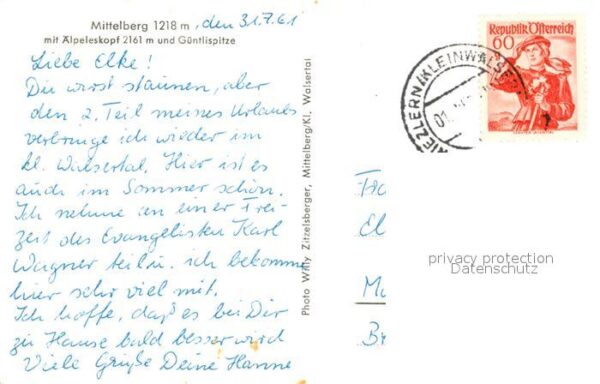 Mittelberg 1218 m, den 31.7.61
mit Älpeleskopf 2161 m und Güntlispitze
Liebe Elke!
Du wirst staunen, aber
den 2. Teil meines Urlaubs
verbringe ich wieder im
kl. Walsertal. Hier ist es
auch im Sommer schön.
Ich nehme an einer Frei-
zeit des Evangelisten Karl
Wagner teil u. ich bekomme
hier sehr viel mit.
Ich hoffe, daß es bei Dir
zu Hause bald besser wird
Viele Grüße Deine Hanne
Photo Willy Zitzelsberger, Mittelberg/Kl. Walsertal
REPUBLIK ÖSTERREICH
60
RIEZLERN/KLEINWALSER
01.
Fra
El
Ma
Br
privacy protection
Datenschutz